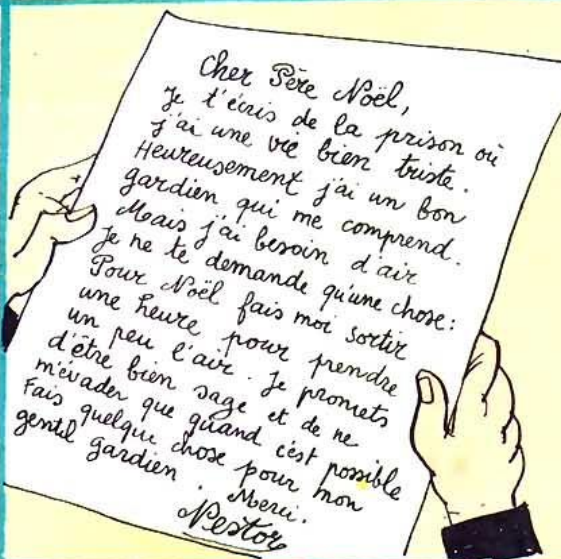 Cher Père Noël,
je t'écris de la prison où
j'ai une vie bien triste.
Heureusement j'ai un bon
gardien qui me comprend.
Mais j'ai besoin d'air
Je ne te demande qu'une chose :
Pour Noël fais moi sortir
une heure pour prendre
un peu l'air. Je promets
d'être bien sage et de ne
m'évader que quand c'est possible
Fais quelque chose pour mon
gentil gardien. Merci.
Nestor